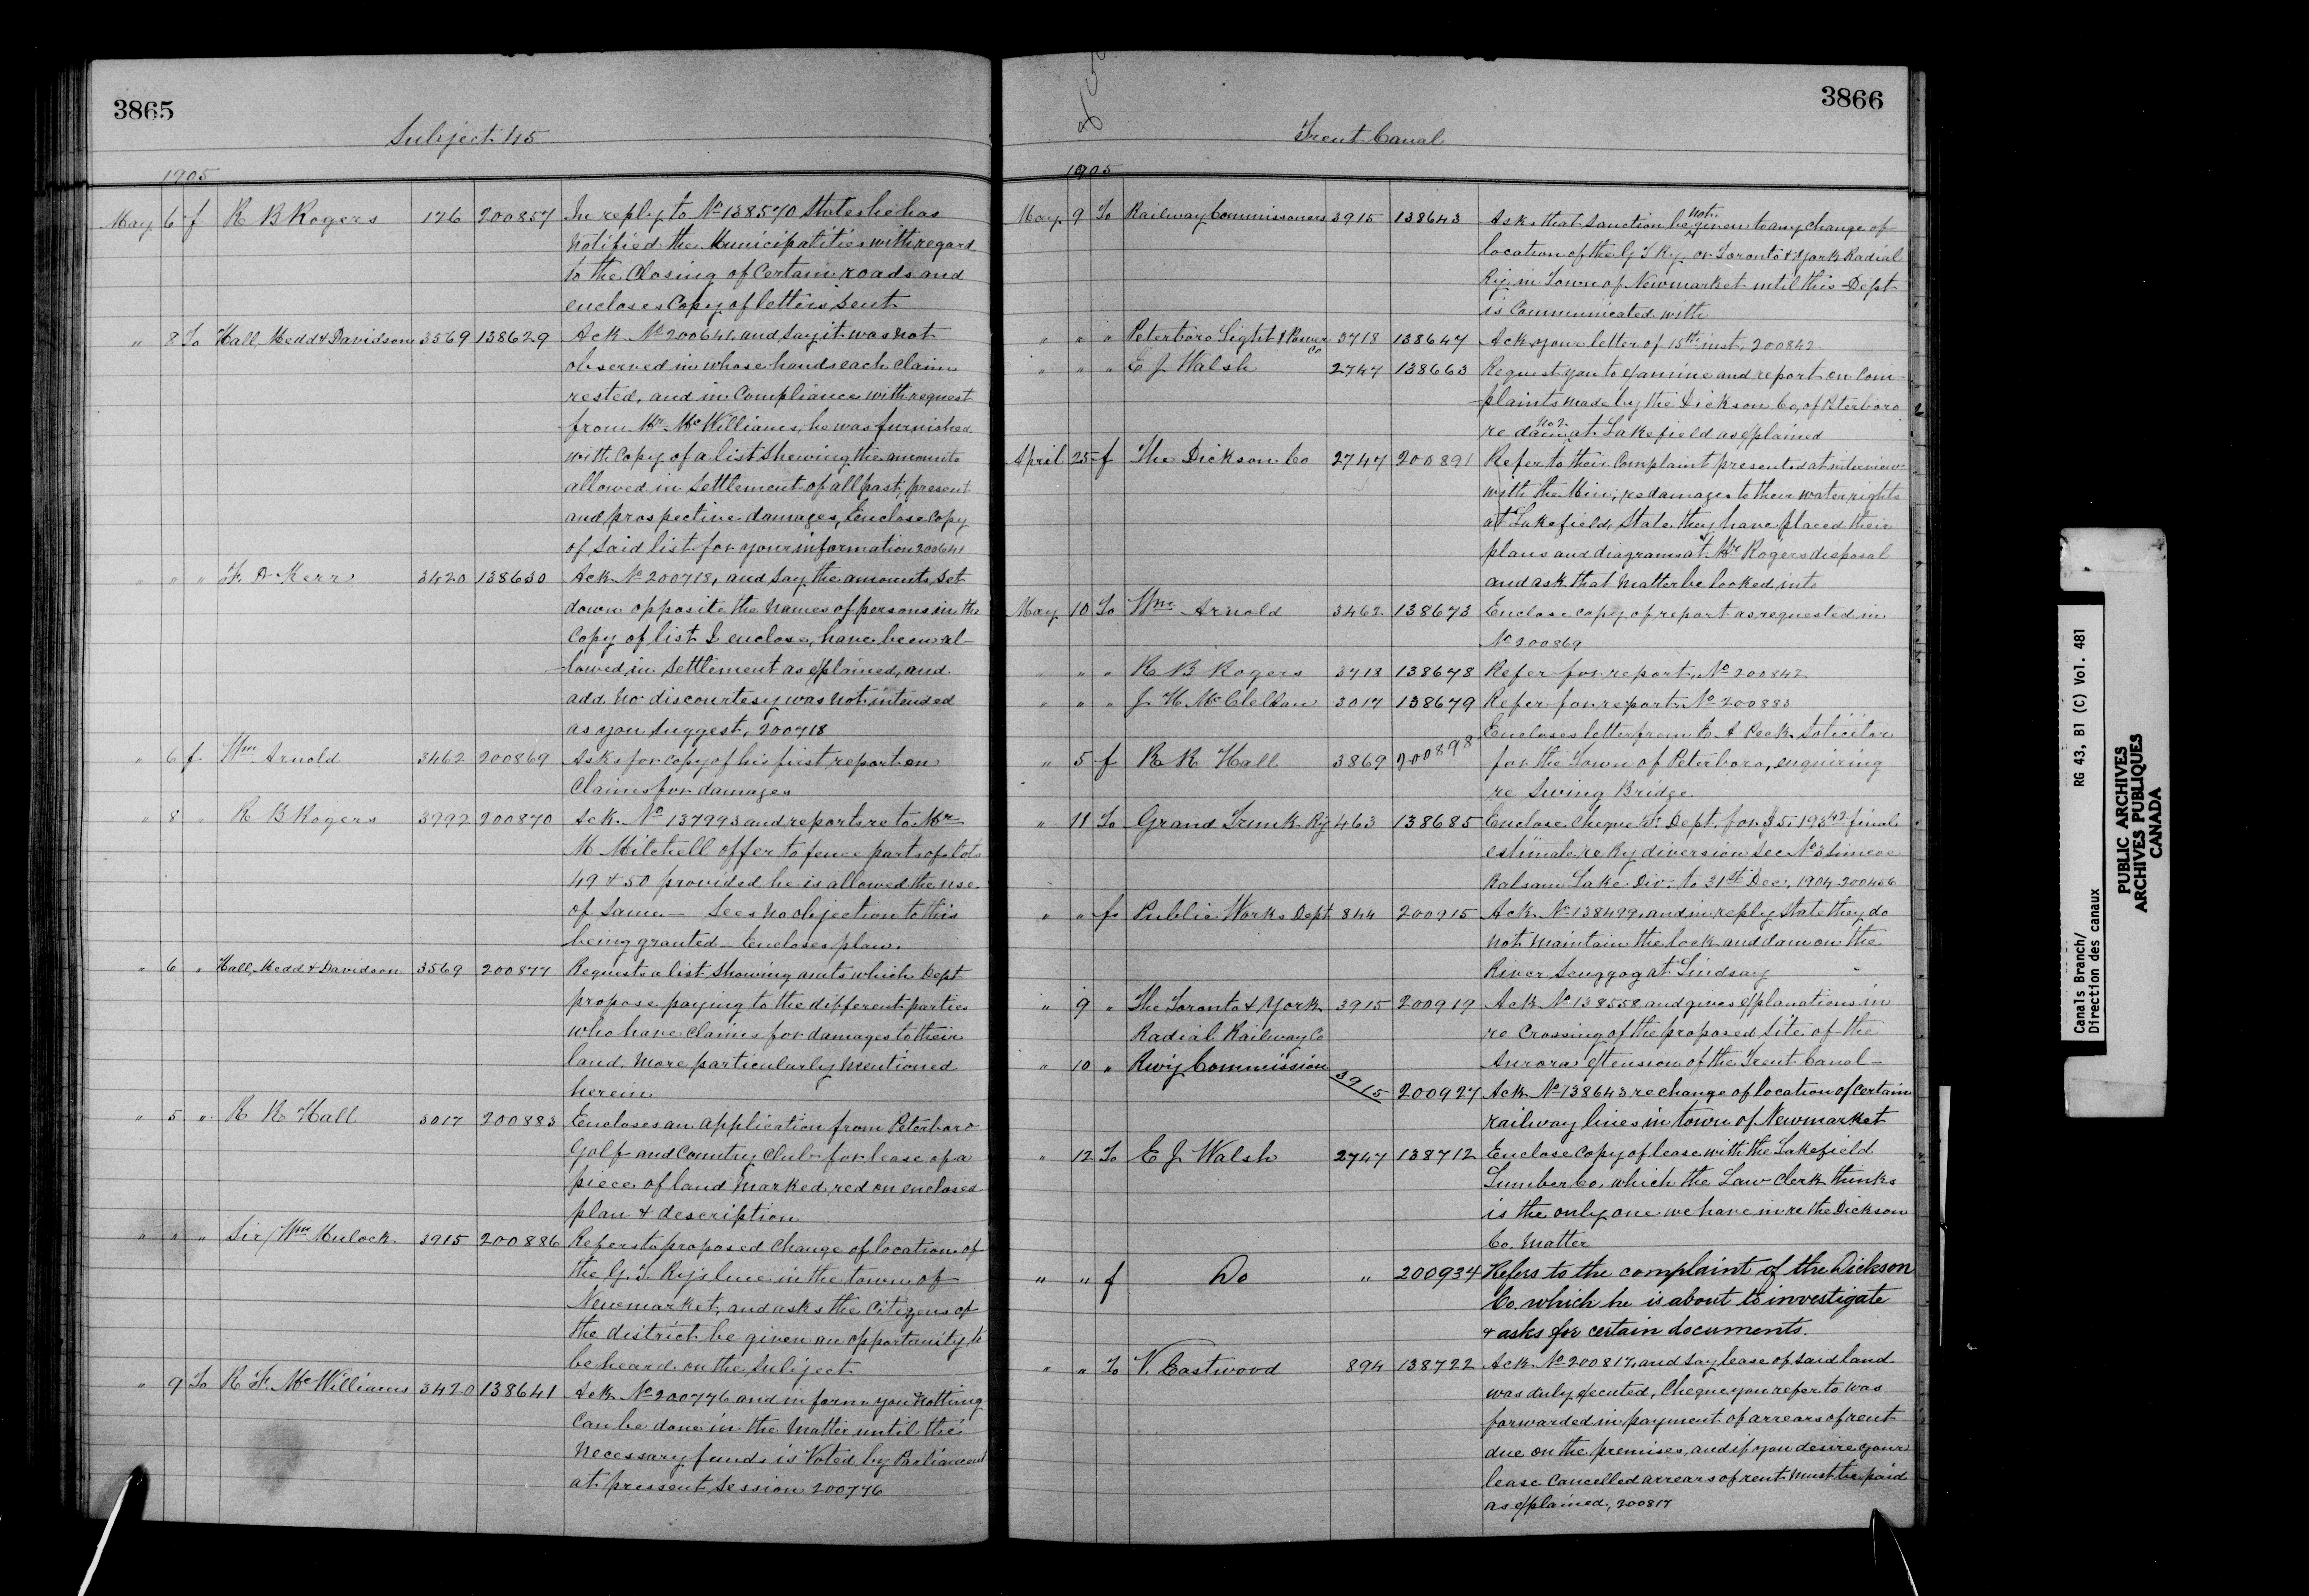 3865
Subject 45
1905
May 6 f R B Rogers 126 200857 In reply to No 138570 States he has
notified the Municipalities with regard
to the closing of certain roads and
encloses copy of letters sent
" 8 To Hall, Medd & Davidson 3569 138629 Ack No 200641, and say it was not
observed in whose hands each claim
rested, and in compliance with request
from Mr McWilliams, he was furnished
with copy of a list shewing the amounts
allowed in settlement of all past, present
and prospective damages, Enclose copy
of said list for your information 200641
" " " F. D Kerr 3420 138630 Ack No 200718, and say the amounts set
down opposite the names of persons in the
copy of list I enclose, have been al-
-lowed in settlement as explained, and
add no discourtesy was not intended
as you suggest, 200718
" 6 f. Wm Arnold 3462 200869 Asks for copy of his first report on
claims for damages
" 8 " R B Rogers 3992 200870 Ack No 137993 and reports re to Mr
M Mitchell offer to fence parts of lots
49 & 50 provided he is allowed the use
of same — Sees no objection to this
being granted — Encloses plan.
" 6 " Hall, Medd & Davidson 3569 200877 Requests a list showing amts which Dept
propose paying to the different parties
who have claims for damages to their
land more particularly mentioned
herein
" 5 " R R Hall 3017 200883 Encloses an application from Peterboro
Golf and Country Club for lease of a
piece of land marked red on enclosed
plan & description
" " " Sir Wm Mulock 3915 200886 Refers to proposed change of location of
the G. T. Ry's line in the town of
Newmarket, and asks the citizens of
the district be given an opportunity to
be heard on the subject
" 9 To R F. McWilliams 3420 138641 Ack No 200776 and inform you nothing
can be done in the matter until the
necessary funds is voted by Parliament
at pressent session 200776
3866
Trent Canal
1905
May 9 To Railway Commissioners 3915 138643 Asks that sanction be not given to any change of
location of the G T Ry or Toronto & York Radial
Ry in Town of Newmarket until this Dept
is communicated with
" " " Peterboro Light & Power Co 3718 138647 Ack your letter of 15th inst, 200842
" " " E J Walsh 2747 138663 Request you to examine and report on com-
-plaints made by the Dickson Co, of Peterboro
re dam No 2 at Lakefield as explained
April 25 f The Dickson Co 2747 200891 Refer to their complaint presented at interview
with the Min; re damages to their water rights
at Lakefield, State they have placed their
plans and diagrams at Mr Rogers disposal
and ask that matter be looked into
May 10 To Wm Arnold 3462 138673 Enclose copy of report as requested in
No 200869
" " " R B Rogers 3718 138678 Refer for report, No 200842
" " " J H McClellan 3017 138679 Refer for report No 200883
" 5 f R R Hall 3869 200898 Encloses letter from E A Peck Solicitor
for the Town of Peterboro, enquiring
re Swing Bridge
" 11 To Grand Trunk Ry 463 138685 Enclose cheque Dept. for $5,193 42 final
estimate re Ry diversion Sec No 3 Simcoe
Balsam Lake Div. to 31st Dec, 1904 200456
" " f. Public Works Dept 844 200915 Ack No 138499, and in reply State they do
not maintain the lock and dam on the
River Scuggog at Lindsay
" 9 " The Toronto & York 3915 200919 Ack No 138558 and gives explanations in
Radial Railway Co re crossing of the proposed site of the
Aurora extension of the Trent Canal —
" 10 " Rwy Commission 3915 200927 Ack No 138643 re change of location of certain
railway lines in town of Newmarket
" 12 To E J Walsh 2747 138712 Enclose copy of lease with the Lakefield
Lumber Co, which the Law Clerk thinks
is the only one we have in re the Dickson
Co. Matter
" " f Do " 200934 Refers to the complaint of the Dickson
Co. which he is about to investigate
& asks for certain documents.
" " To V. Eastwood 894 138722 Ack No 200817, and say lease of said land
was duly executed, Cheque you refer to was
forwarded in payment of arrears of rent
due on the premises, and if you desire your
lease cancelled arrears of rent must be paid
as explained, 200817
Canals Branch/ RG 43, B1 (C) Vol. 481
Direction des canaux
PUBLIC ARCHIVES
ARCHIVES PUBLIQUES
CANADA